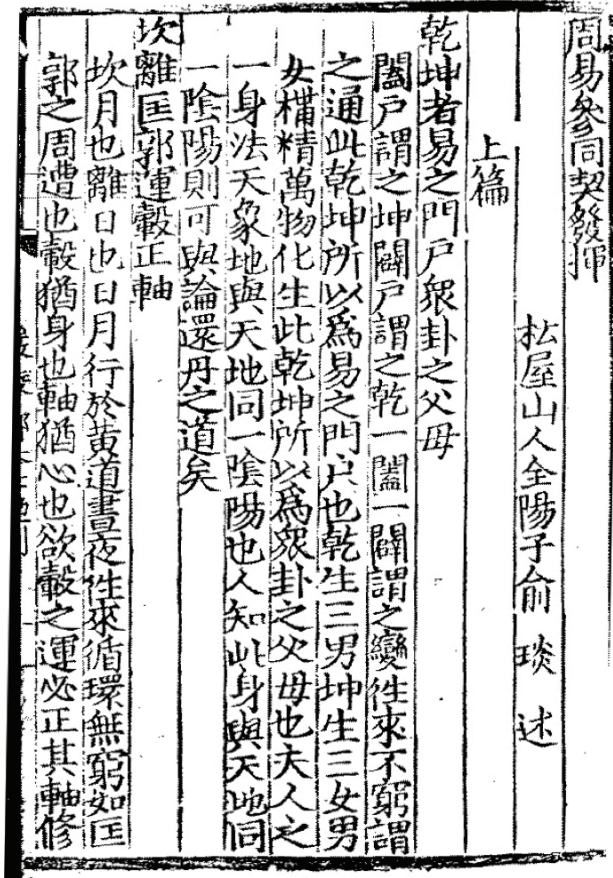 周易參同契發揮
㕬屋山人全陽子俞琰述
上篇
乾坤者易之門戶衆卦之父母
闔戶謂之坤闢戶謂之乾一闔一闢謂之變徃來不窮謂
之通此乾坤所以爲易之門戶也乾生三男坤生三女男
女構精萬物化生此乾坤所以爲衆卦之父母也夫人之
一身法天象地與天地同一陰陽也人知此身與天地同
一陰陽則可與論還丹之道矣
坎離匡郭運轂正軸
坎月也離日也日月行於黃道晝夜徃來循環無窮如匡
郭之周遭也轂猶身也軸猶心也欲轂之運必正其軸修